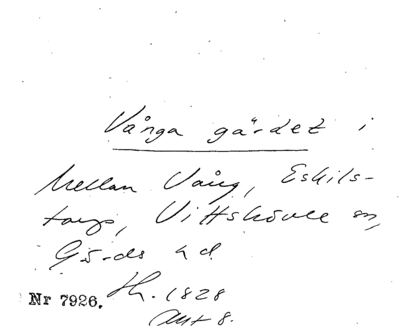 Vånga gärdet i
Mellan Vång, Eskils-
torp, Vittskövle sn,
Gärds hd.
Nr 7926. Th. 1828
Akt 8.